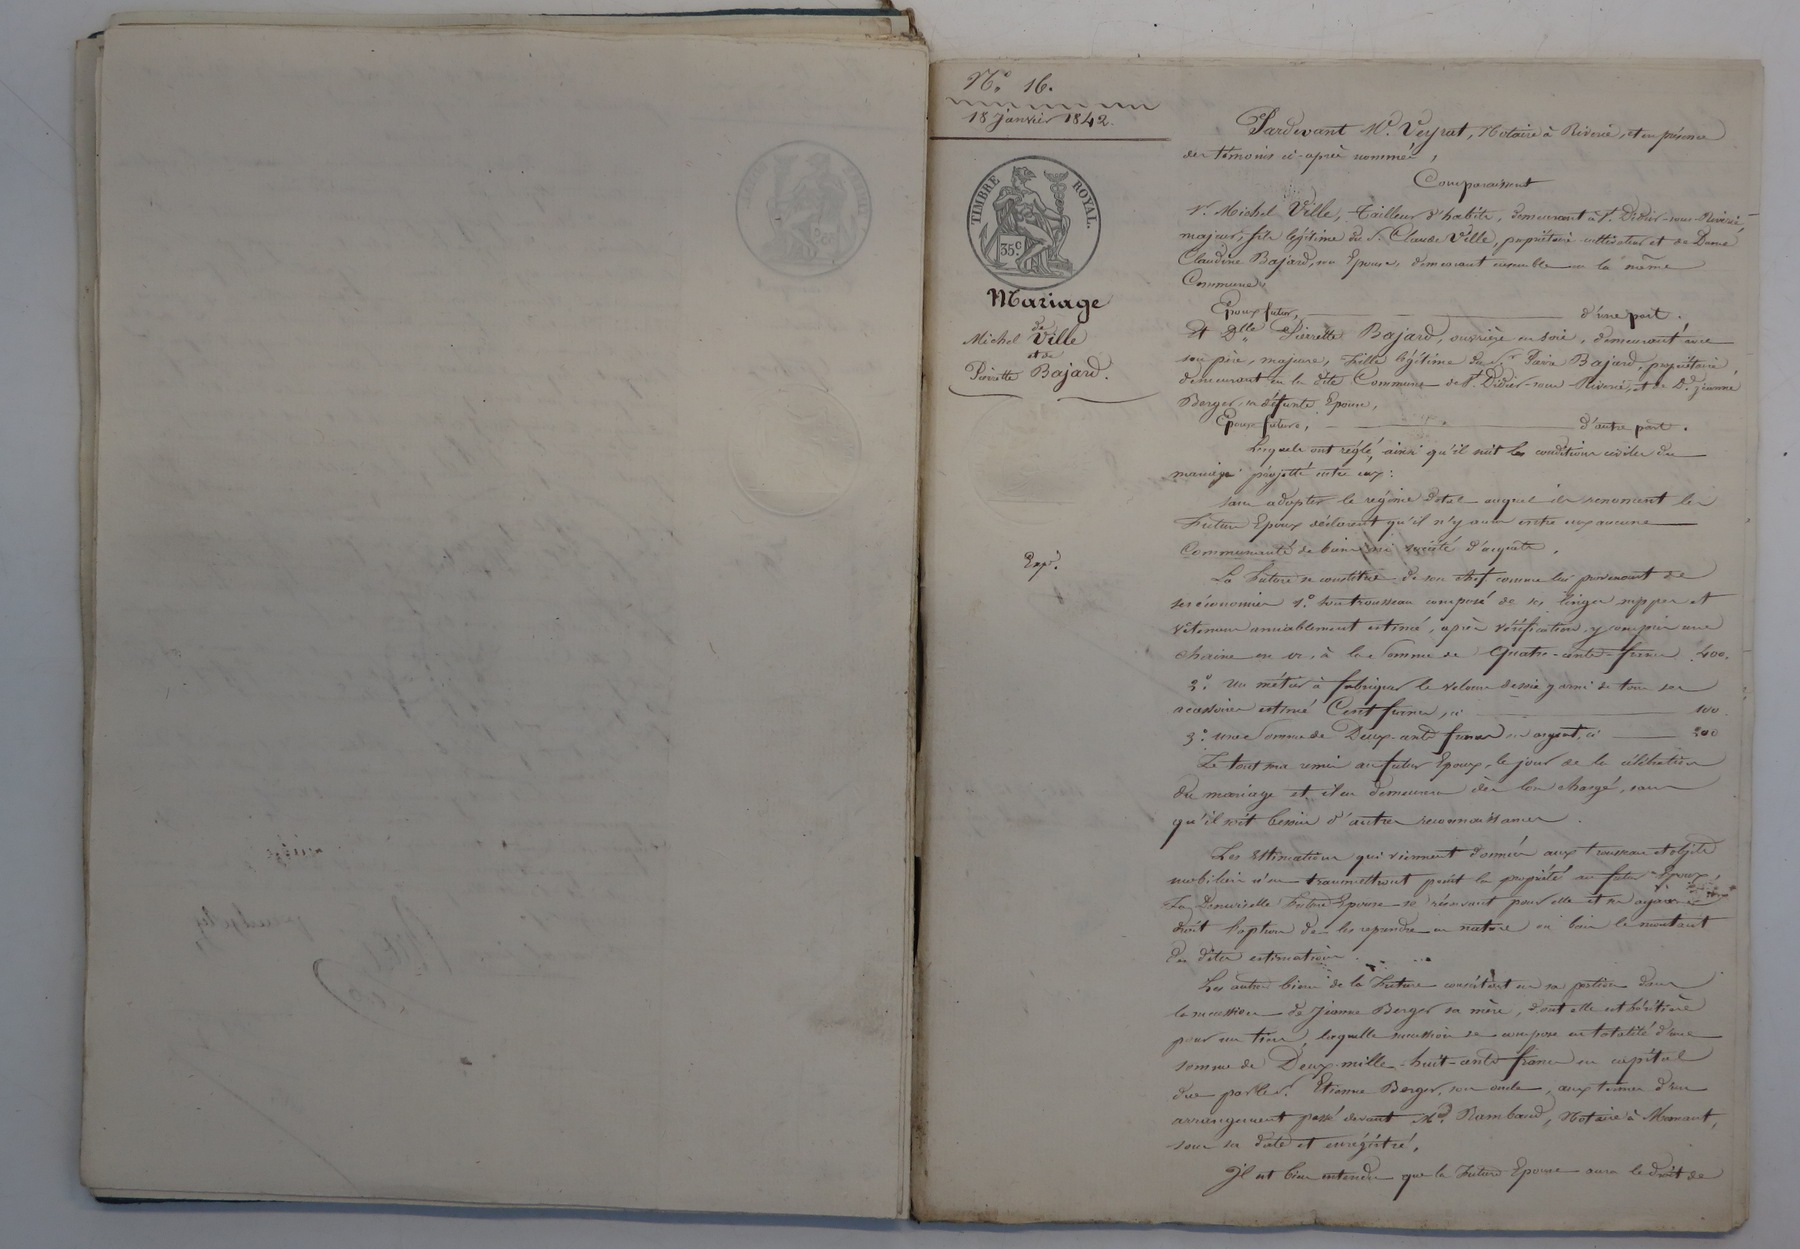 N.° 16.
18 janvier 1842.
TIMBRE ROYAL.
35.c
Mariage
de
Michel Ville
et de
Pierrette Bajard.
Exp.
Pardevant M.e Veyrat, Notaire à Riverie, et en présence
des témoins ci-après nommés,
Comparaissent
S.r Michel Ville, Tailleur d'habits, demeurant à S.t Didier-sous-Riverie,
majeur, fils légitime du S.r Claude Ville, propriétaire cultivateur et de Dame
Claudine Bajard, son Epouse, demeurant ensemble en la même
Commune,
Epoux futur, d'une part.
Et D.lle Pierrette Bajard, ouvrière en soie, demeurant avec
son père, majeure, fille légitime du S.r Bajard, propriétaire,
demeurant en la dite Commune de S.t Didier-sous-Riverie, et de D.e Jeanne
Berger, sa défunte Epouse,
Epouse future, d'autre part.
Lesquels ont réglé, ainsi qu'il suit les conditions civiles du
mariage projetté entre eux:
Sans adopter le régime dotal auquel ils renoncent les
Futurs Epoux déclarent qu'il n'y aura entre eux aucune
Communauté de biens ni société d'acquêts.
La Future se constitue de son chef comme lui provenant de
ses économies 1.° son trousseau composé de ses linges nippes et
vêtemens amiablement estimé, après vérification, y compris une
chaine en or, à la somme de Quatre-cents-francs 400.
2.° Un métier à fabriquer le velours de soie garni de tous ses
accessoires estimé Cent francs, ci 100
3.° Une somme de Deux-cents francs en argent, ci 200
Le tout sera remis au futur Epoux, le jour de la célébration
du mariage et il en demeurera dès lors chargé, sans
qu'il soit besoin d'autres reconnaissances.
Les Estimations qui viennent données aux trousseau et objets
mobiliers n'en transmettront point la propriété au futur Epoux,
La Demoiselle Future Epouse se réservant pour elle et ses
droit l'option de les reprendre en nature ou bien le montant
des dites estimations.
Les autres biens de la Future consistent en sa portion dans
la succession de Jeanne Berger sa mère, dont elle est héritière
pour un tiers, laquelle succession se compose en totalité d'une
somme de Deux-mille-huit-cents francs en capital
due par le S.r Etienne Berger, son oncle, aux termes d'un
arrangement passé devant M.e Rambaud, Notaire à Mornant,
sous sa date et enrégistré.
Il est bien entendu que la Future Epouse aura le droit de